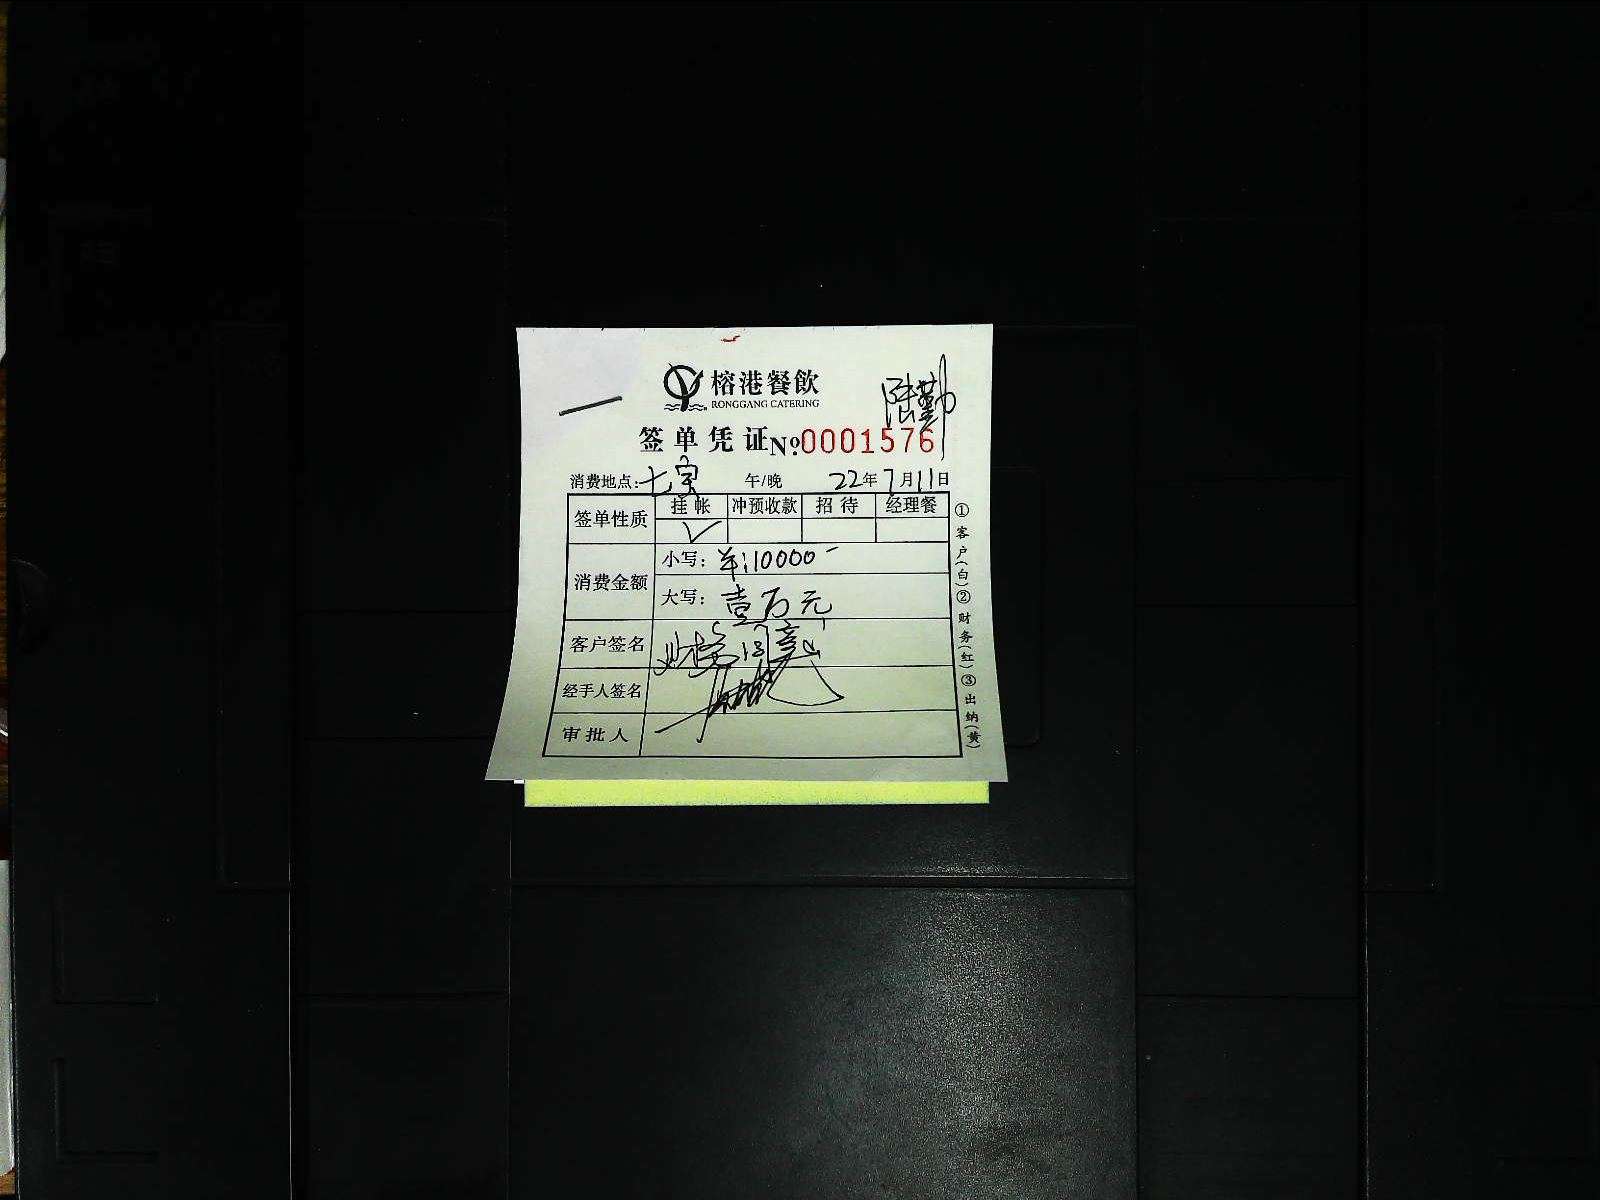 榕港餐飲
RONGGANG CATERING
陆勤
签单凭证 №:0001576
消费地点: 七 午/晚 22年7月11日
签单性质 挂帐 冲预收款 招待 经理餐
✓
消费金额 小写: ¥:10000-
大写: 壹万元
客户签名
经手人签名
审批人
①客户(白)②财务(红)③出纳(黄)